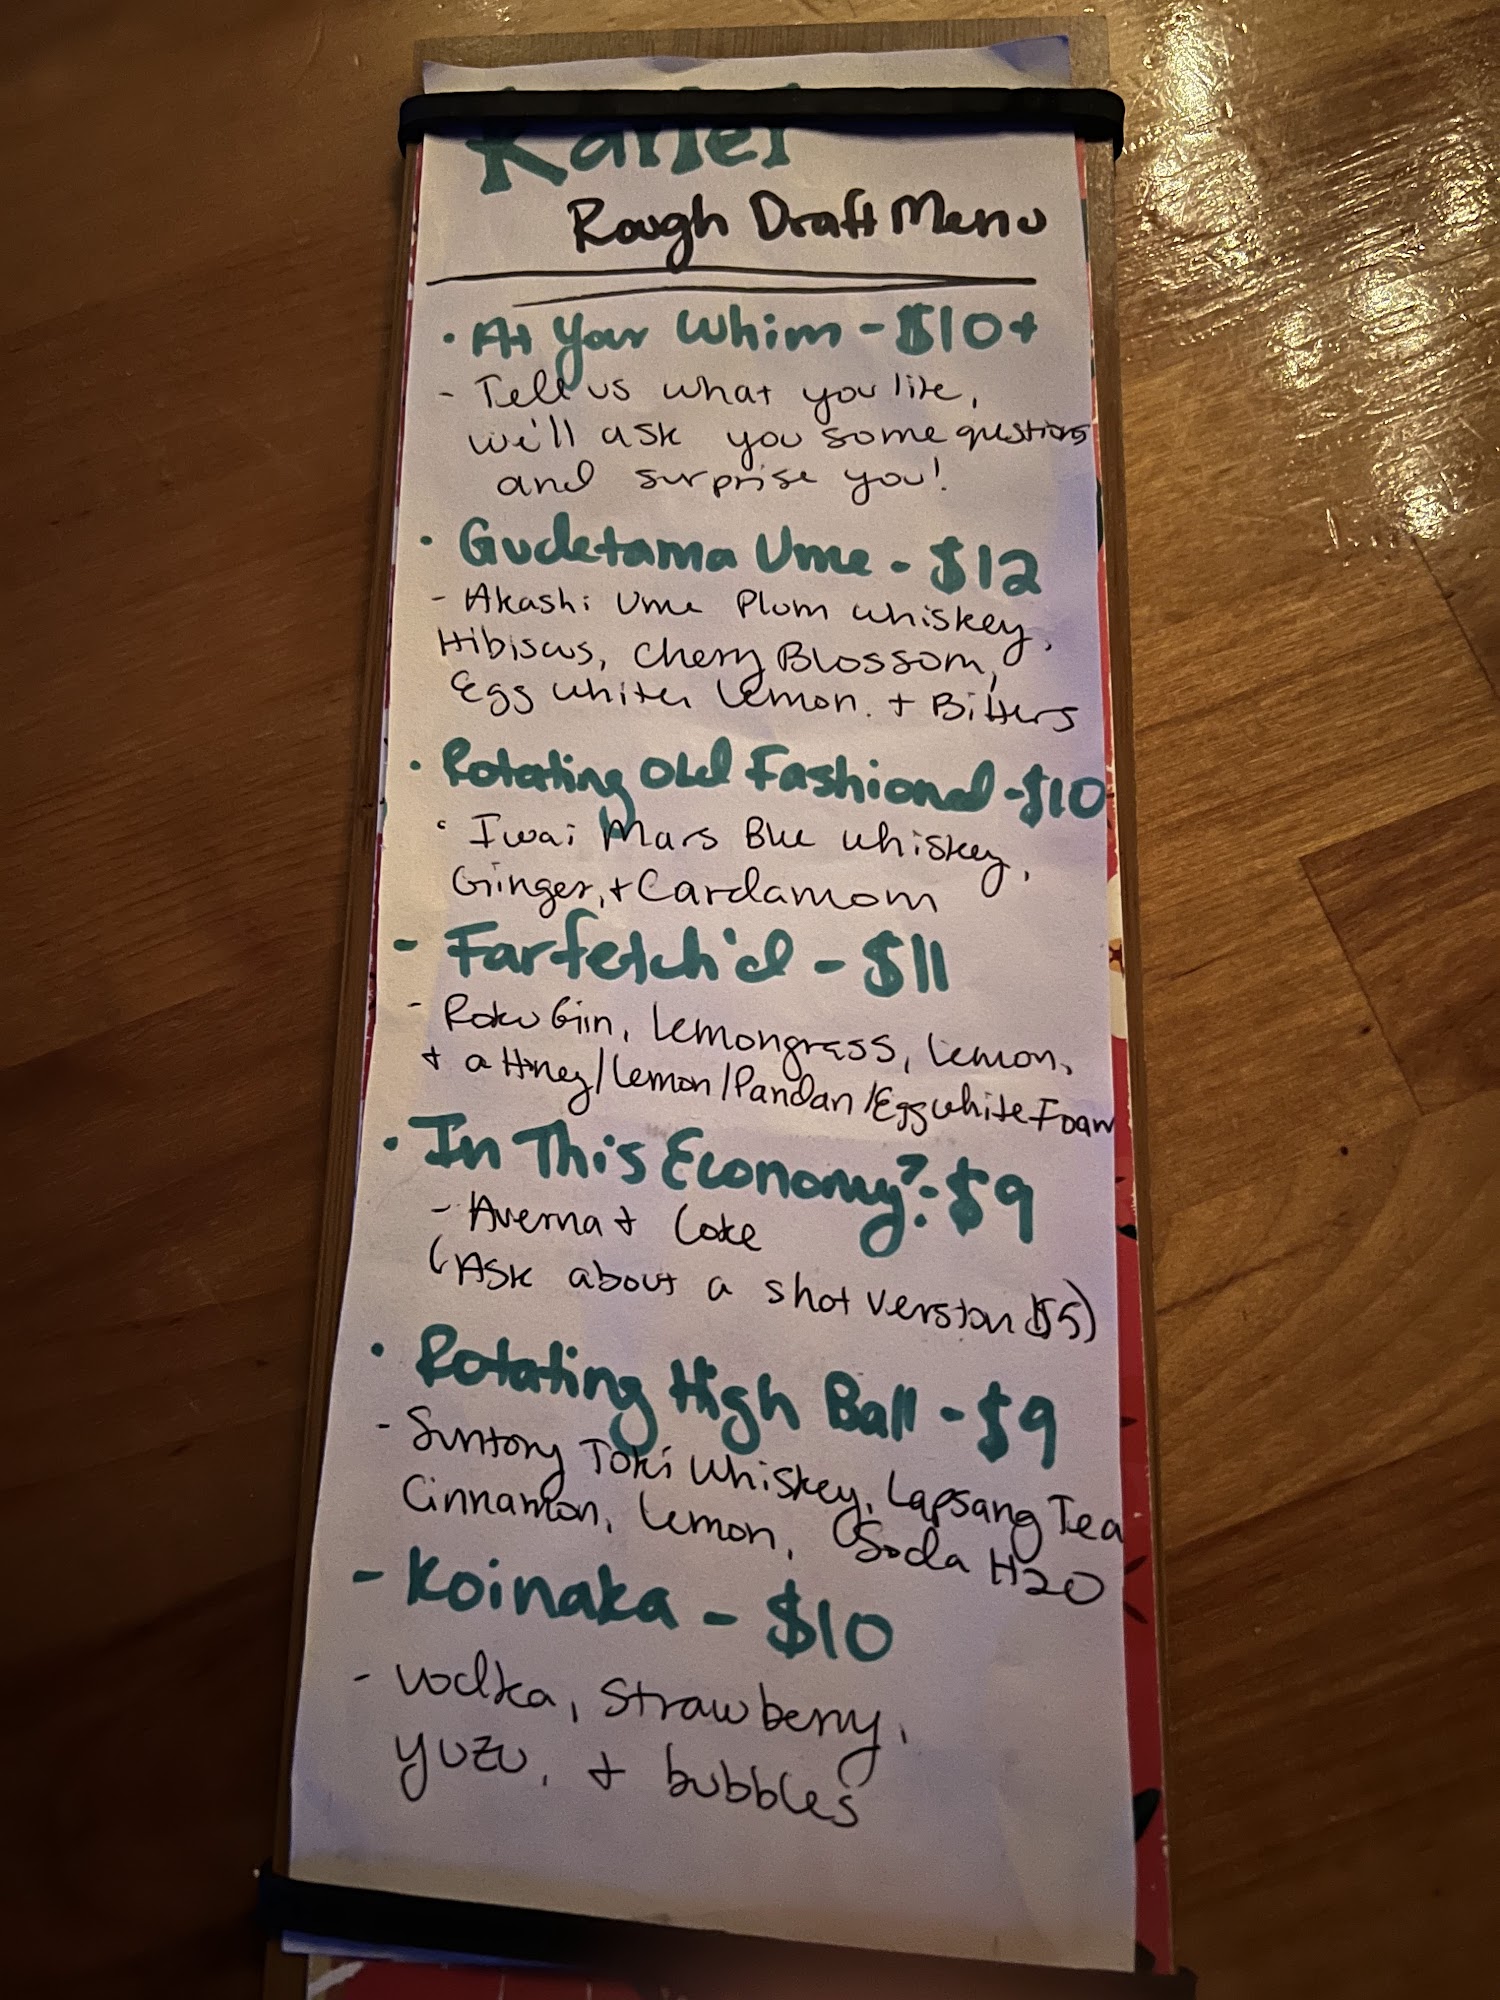 Rough Draft Menu
· At Your Whim - $10+
- Tell us what you like,
we'll ask you some questions
and surprise you!
· Gudetama Ume - $12
- Akashi Ume Plum whiskey,
Hibiscus, Cherry Blossom,
Egg white, Lemon. + Bitters
· Rotating Old Fashioned - $10
· Iwai Mars Blue whiskey,
Ginger, + Cardamom
- Farfetch'd - $11
- Roku Gin, Lemongrass, Lemon,
+ a Honey/Lemon/Pandan/Egg white Foam
· In This Economy? - $9
- Averna + Coke
(Ask about a shot version $5)
· Rotating High Ball - $9
- Suntory Toki Whiskey, Lapsang Tea
Cinnamon, Lemon, Soda H2O
- Koinaka - $10
- Vodka, Strawberry,
yuzu, + bubbles